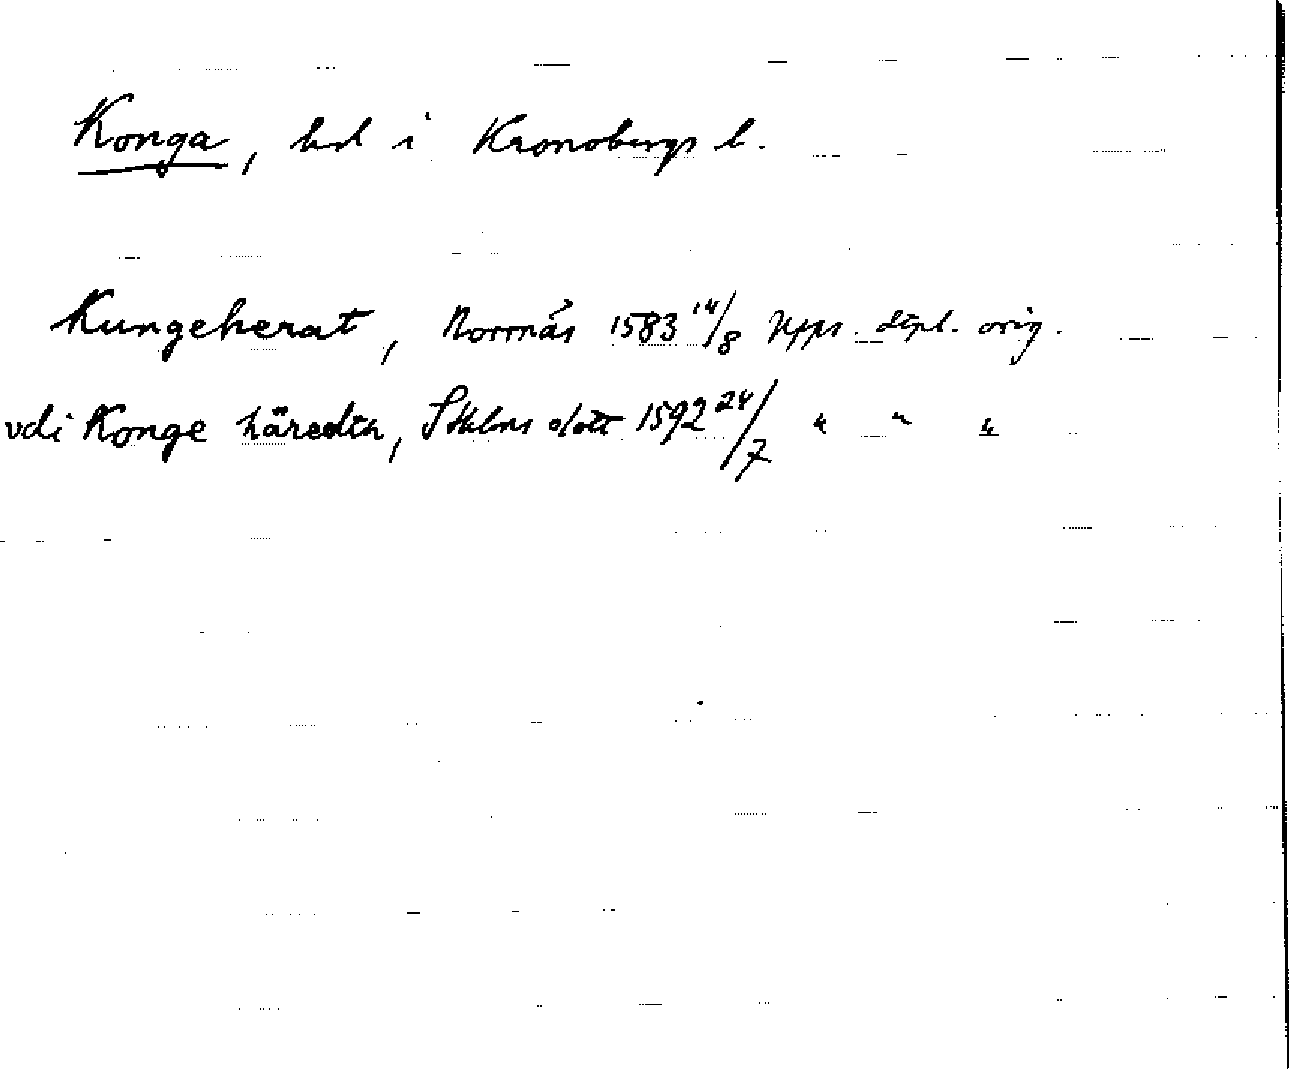 Konga, hd i Kronobergs l.
Kungeherat, Norrnäs 1583 14/8 Upps. dipl. orig.
vdi Konge häredth, Sthlms slott 1592 24/7 " " "